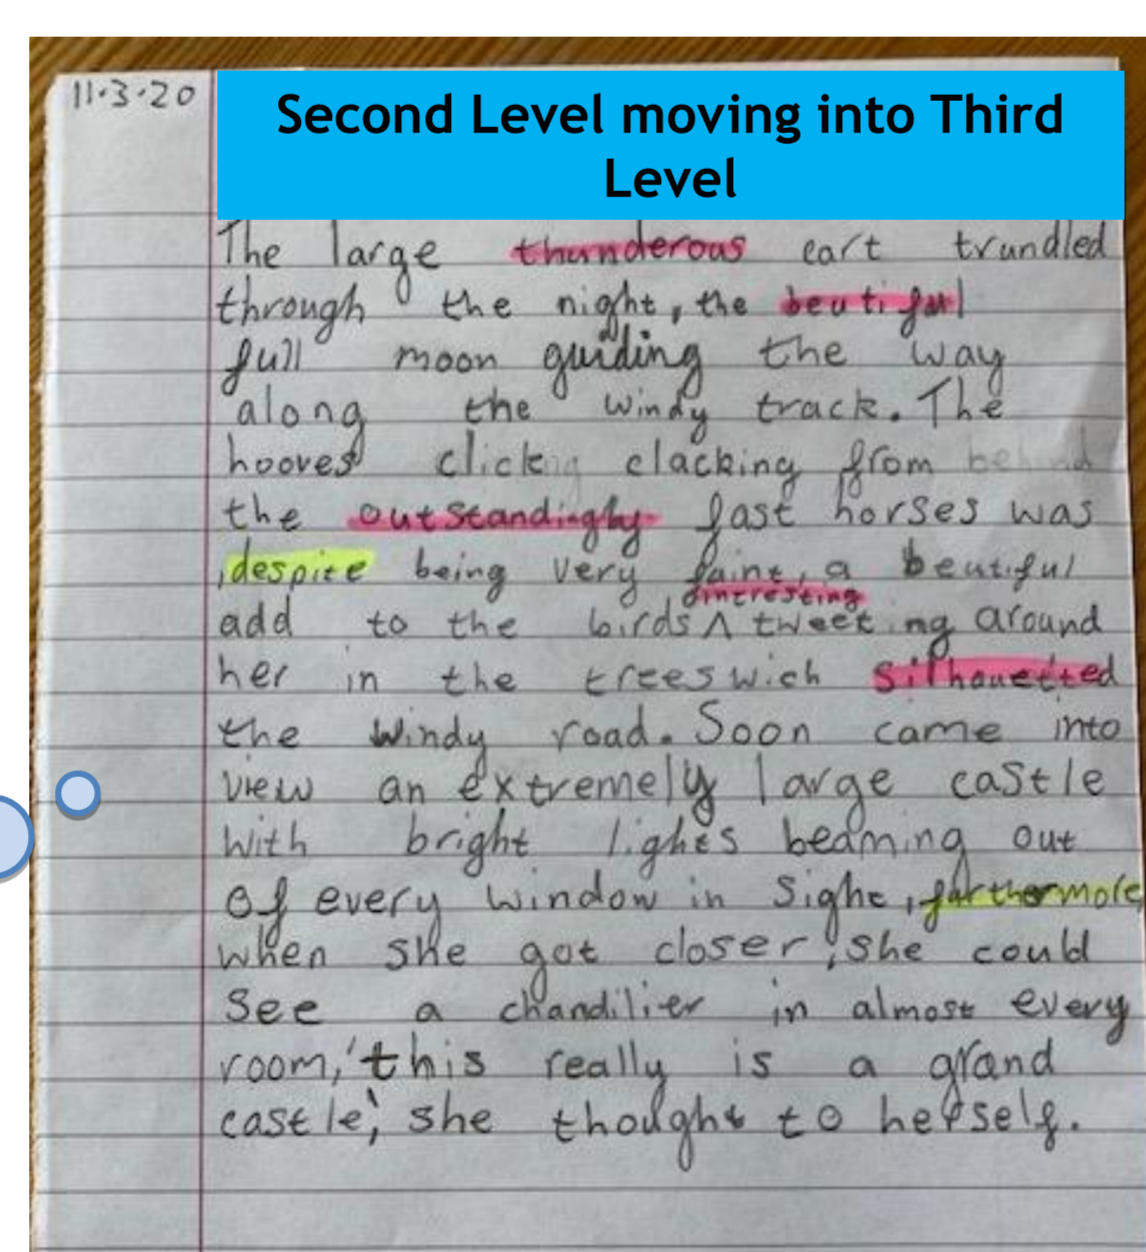 11.3.20
Second Level moving into Third
Level
The large thunderous cart trundled
through the night, the beutiful
full moon guiding the way
along the windy track. The
hooves clicking clacking from behind
the outstandingly fast horses was
,despite being very faint, a beutiful
interesting
add to the birds ^ tweeting around
her in the trees wich silhouetted
the windy road. Soon came into
view an extremely large castle
with bright lights beaming out
of every window in sight, furthermore,
when she got closer, she could
see a chandilier in almost every
room, 'this really is a grand
castle', she thought to herself.